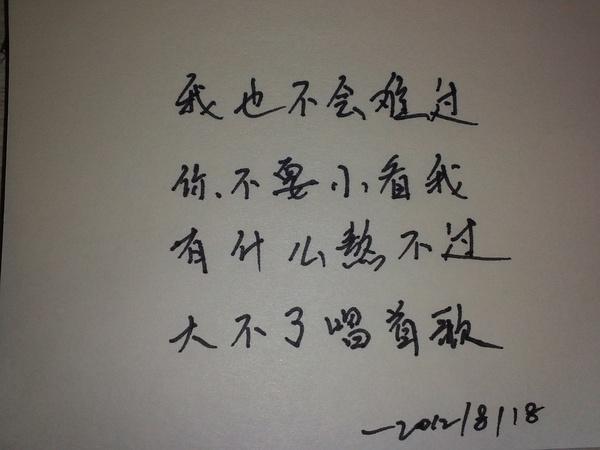 我也不会难过
你不要小看我
有什么熬不过
大不了唱首歌
—2012/8/18